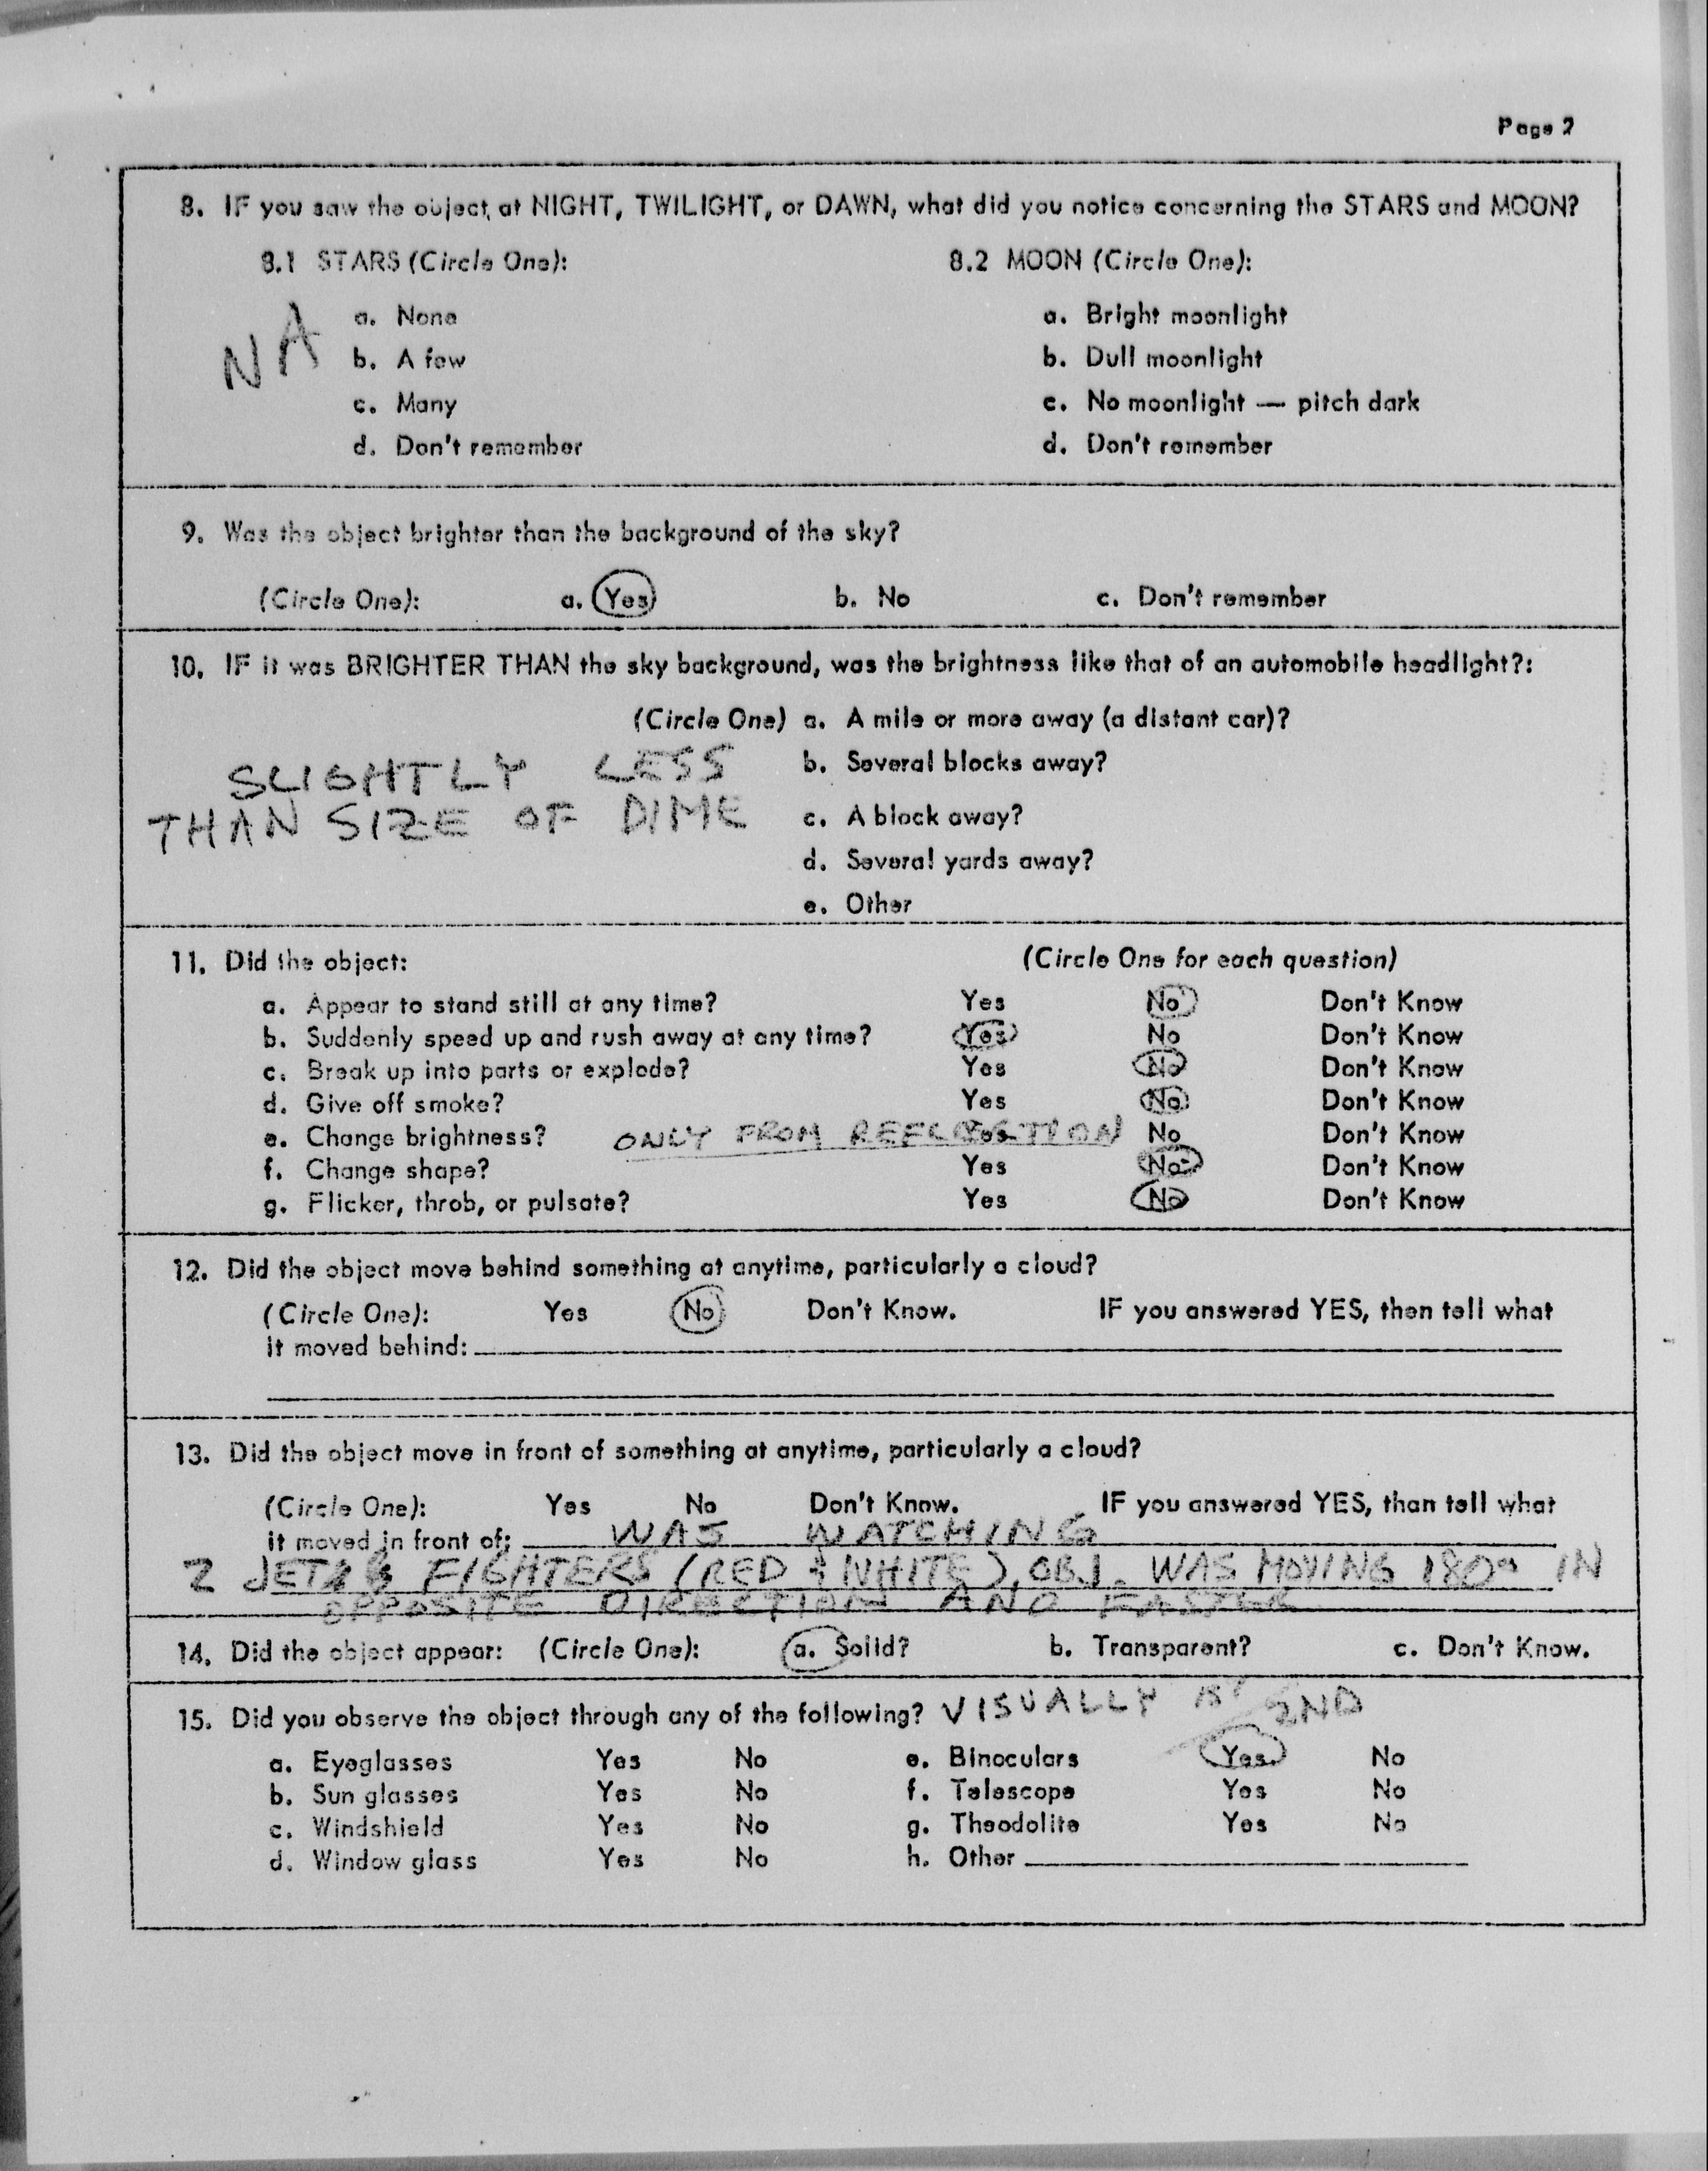 Page 2
8. IF you saw the object at NIGHT, TWILIGHT, or DAWN, what did you notice concerning the STARS and MOON?
8.1 STARS (Circle One): 8.2 MOON (Circle One):
a. None a. Bright moonlight
NA b. A few b. Dull moonlight
c. Many c. No moonlight — pitch dark
d. Don't remember d. Don't remember
9. Was the object brighter than the background of the sky?
(Circle One): a. Yes b. No c. Don't remember
10. IF it was BRIGHTER THAN the sky background, was the brightness like that of an automobile headlight?:
(Circle One) a. A mile or more away (a distant car)?
SLIGHTLY LESS b. Several blocks away?
THAN SIZE OF DIME c. A block away?
d. Several yards away?
e. Other
11. Did the object: (Circle One for each question)
a. Appear to stand still at any time? Yes No Don't Know
b. Suddenly speed up and rush away at any time? Yes No Don't Know
c. Break up into parts or explode? Yes No Don't Know
d. Give off smoke? Yes No Don't Know
e. Change brightness? ONLY FROM REFLECTION Yes No Don't Know
f. Change shape? Yes No Don't Know
g. Flicker, throb, or pulsate? Yes No Don't Know
12. Did the object move behind something at anytime, particularly a cloud?
(Circle One): Yes No Don't Know. IF you answered YES, then tell what
it moved behind:
13. Did the object move in front of something at anytime, particularly a cloud?
(Circle One): Yes No Don't Know. IF you answered YES, than tell what
it moved in front of: WAS WATCHING
2 JET FIGHTERS (RED & WHITE), OBJ. WAS MOVING 180° IN
OPPOSITE DIRECTION AND FASTER
14. Did the object appear: (Circle One): a. Solid? b. Transparent? c. Don't Know.
15. Did you observe the object through any of the following? VISUALLY 1ST 2ND
a. Eyeglasses Yes No e. Binoculars Yes No
b. Sun glasses Yes No f. Telescope Yes No
c. Windshield Yes No g. Theodolite Yes No
d. Window glass Yes No h. Other